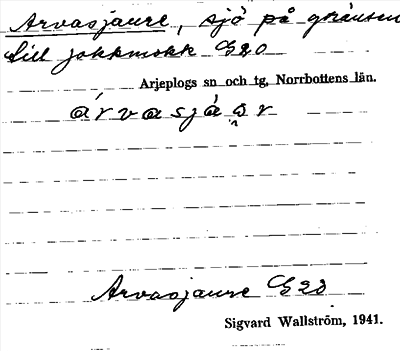 Arvasjaure, sjö på gränsen
till Jokkmokk G20
Arjeplogs sn och tg, Norrbottens län.
árvasjáər
Arvasjaure G20
Sigvard Wallström, 1941.